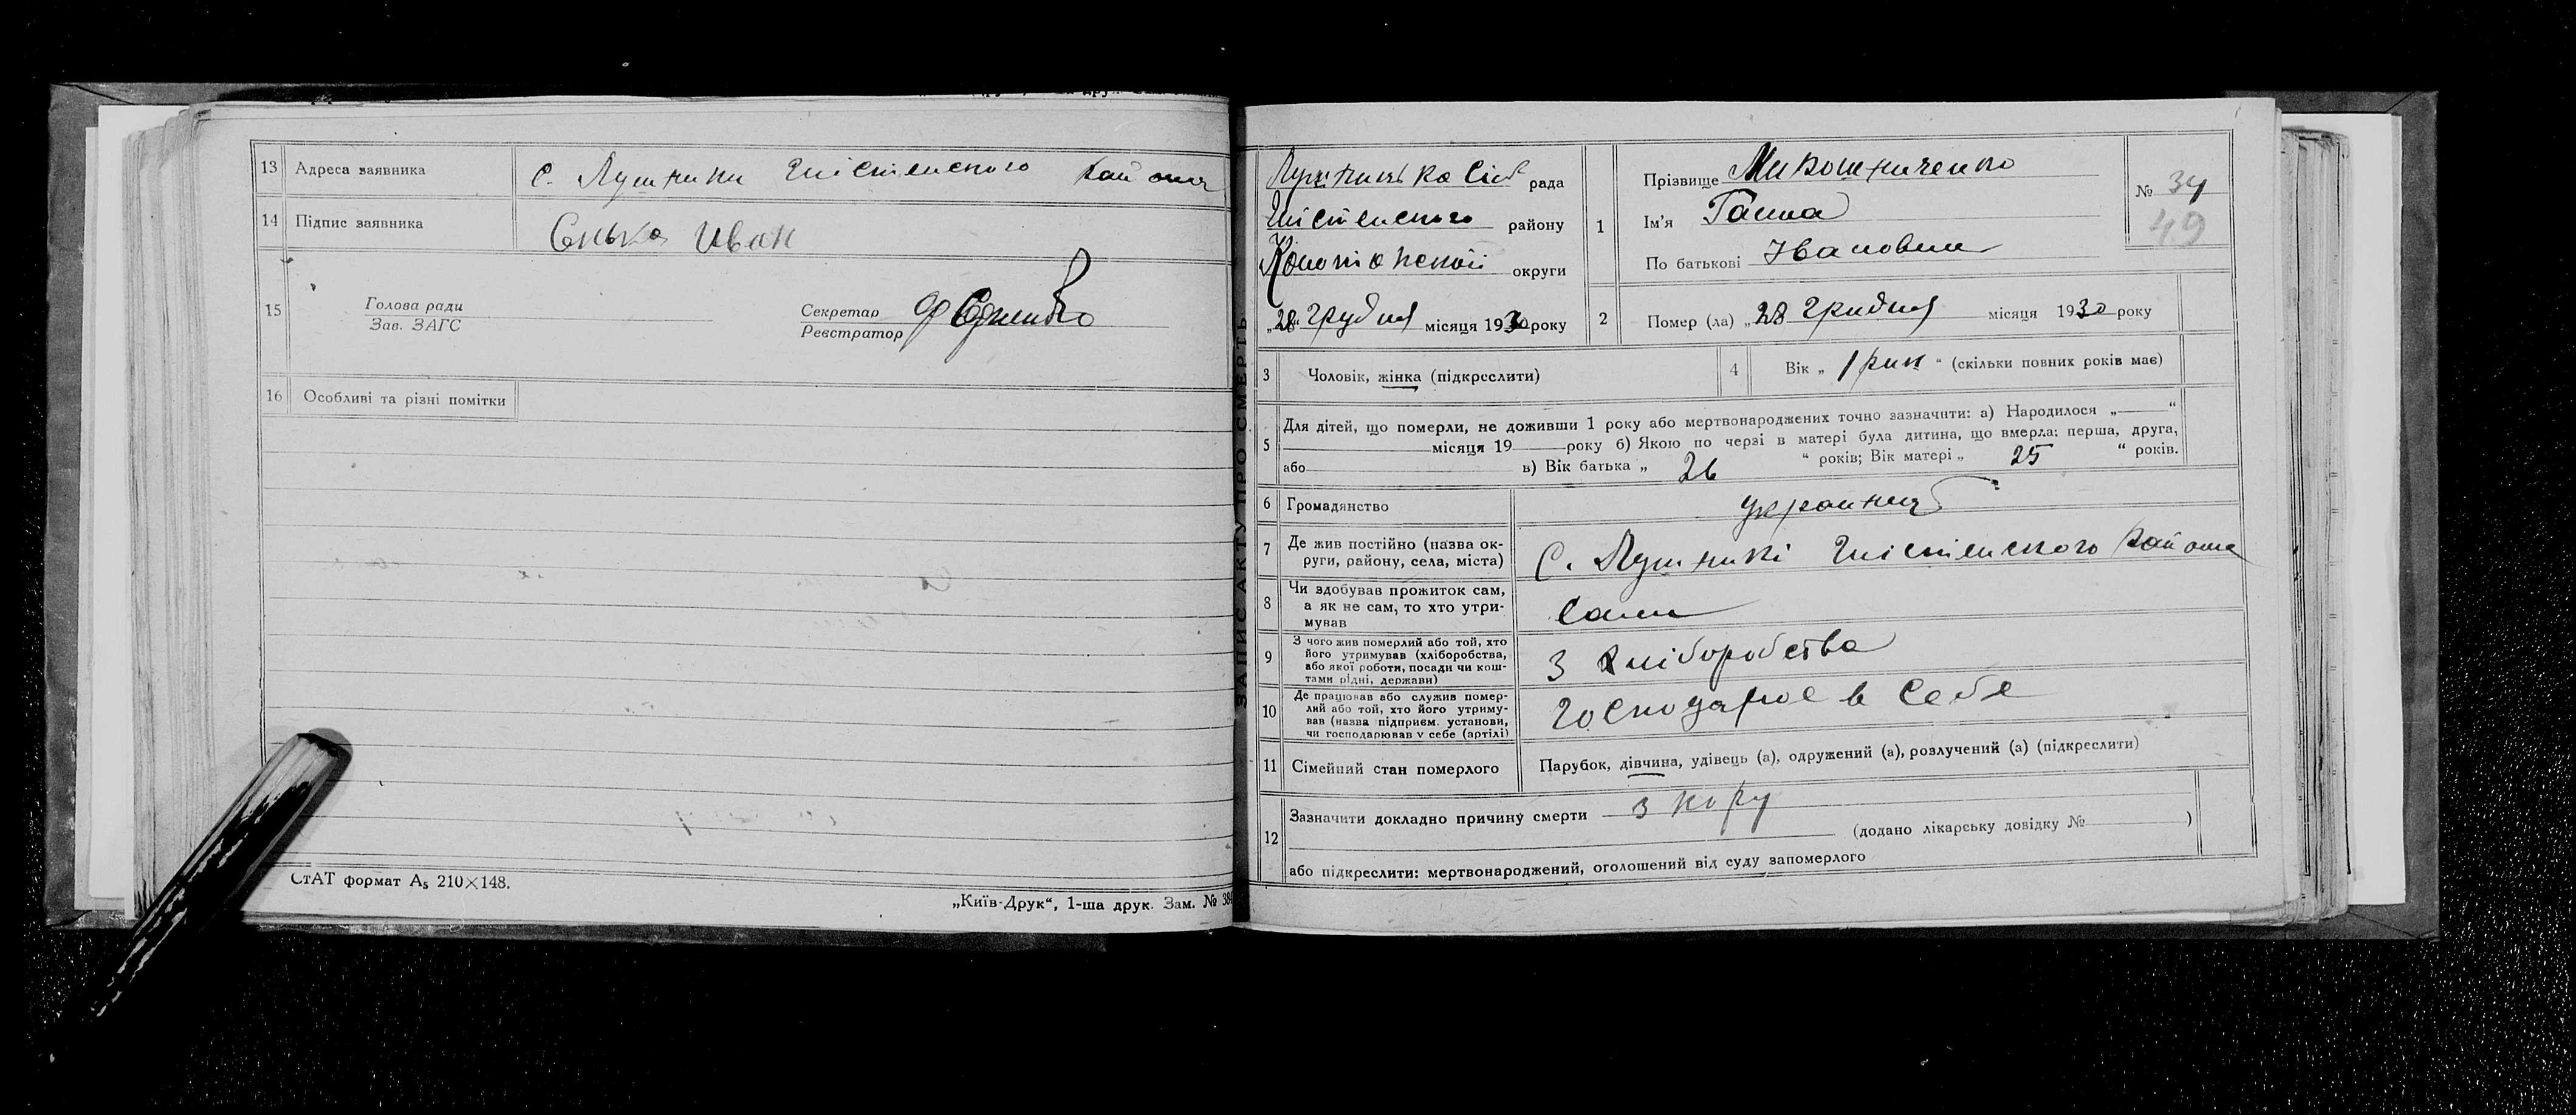 13 Адреса заявника С. Лушники Шістенского району
14 Підпис заявника Сенько Иван
15 Голова ради
Зав. ЗАГС
Секретар
Реєстратор
16 Особливі та різні помітки
СтАТ формат А₅ 210×148.
„Київ-Друк“, 1-ша друк. Зам. № 38
ЗАПИС АКТУ ПРО СМЕРТЬ
рада
Шістенского району
Конотопскої округи
„28“ грудня місяця 1930 року
1 Прізвище Мирошниченко
Ім'я Ганна
По батькові Ивановна
№ 34
49
2 Помер (ла) „28 грудня місяця 1930 року
3 Чоловік, жінка (підкреслити)
4 Вік „ 1 рик “ (скільки повних років має)
5 Для дітей, що померли, не доживши 1 року або мертвонароджених точно зазначити: а) Народилося „ “
місяця 19 року б) Якою по черзі в матері була дитина, що вмерла: перша, друга,
або в) Вік батька „ 26 “ років; Вік матері „ 25 “ років.
6 Громадянство
7 Де жив постійно (назва ок-
руги, району, села, міста) С. Лушникі Шістенского району
8 Чи здобував прожиток сам,
а як не сам, то хто утри-
мував
9 З чого жив померлий або той, хто
його утримував (хліборобства,
або якої роботи, посади чи кош-
тами рідні, держави) З хліборобства
10 Де працював або служив помер-
лий або той, хто його утриму-
вав (назва підприєм. установи,
чи господарював у себе (артілі) господарює в себе
11 Сімейний стан померлого Парубок, дівчина, удівець (а), одружений (а), розлучений (а) (підкреслити)
12 Зазначити докладно причину смерти з кору
(додано лікарську довідку № )
або підкреслити: мертвонароджений, оголошений від суду запомерлого